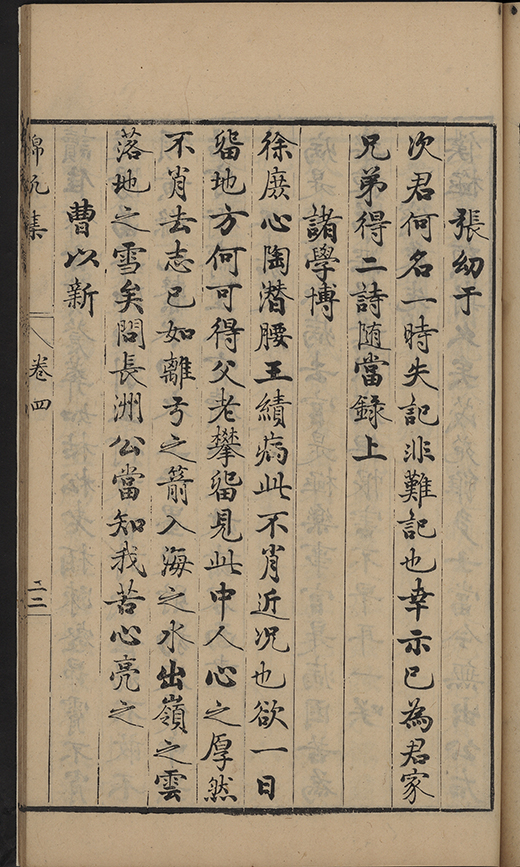 張幼于
次君何名一時失記非難記也幸示已為君家
兄弟得二詩随當錄上
諸學博
徐庶心陶潜腰王績病此不肖近况也欲一日
留地方何可得父老攀留見此中人心之厚然
不肖去志已如離弓之箭入海之水出嶺之雲
落地之雪矣問長洲公當知我苦心亮之
曹以新
錦帆集
卷四
二三